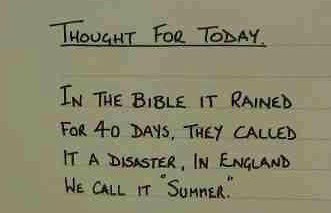 THOUGHT FOR TODAY.
IN THE BIBLE IT RAINED
FOR 40 DAYS, THEY CALLED
IT A DISASTER, IN ENGLAND
WE CALL IT "SUMMER".